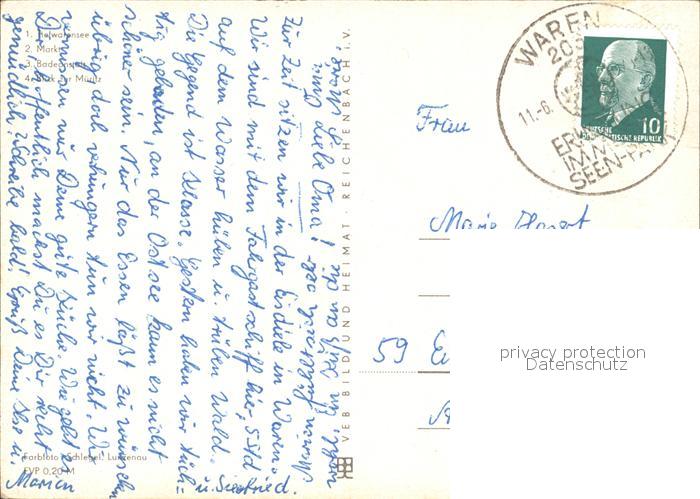 1. Tiefwarensee
2. Markt
3. Badeanstalt
4. Blick zur Müritz
Liebe Oma!
Zur Zeit sitzen wir in der Eisdiele in Waren.
Wir sind mit dem Fahrgastschiff hier, 5 Std
auf dem Wasser hüben u. drüben Wald.
Die Gegend ist Klasse. Gestern haben wir tüch=
tig gebadet, an der Ostsee kann es nicht
schöner sein. Nur das Essen läßt zu wünschen
übrig doch verhungern tun wir nicht. Wir
vermissen nur Deine gute Küche. Wie geht
Dir hoffentlich machst Du es Dir recht
gemütlich. Schreibe bald! Gruß Deine Ilse u.
Marion
u. Siegfried.
Farbfoto: Schlegel, Lunzenau
EVP 0,20 M
VEB BILD UND HEIMAT · REICHENBACH i. V.
WAREN
11.-6.
SEEN-
DEUTSCHE
DEMOKRATISCHE REPUBLIK
10
Frau
Marie
59
privacy protection
Datenschutz